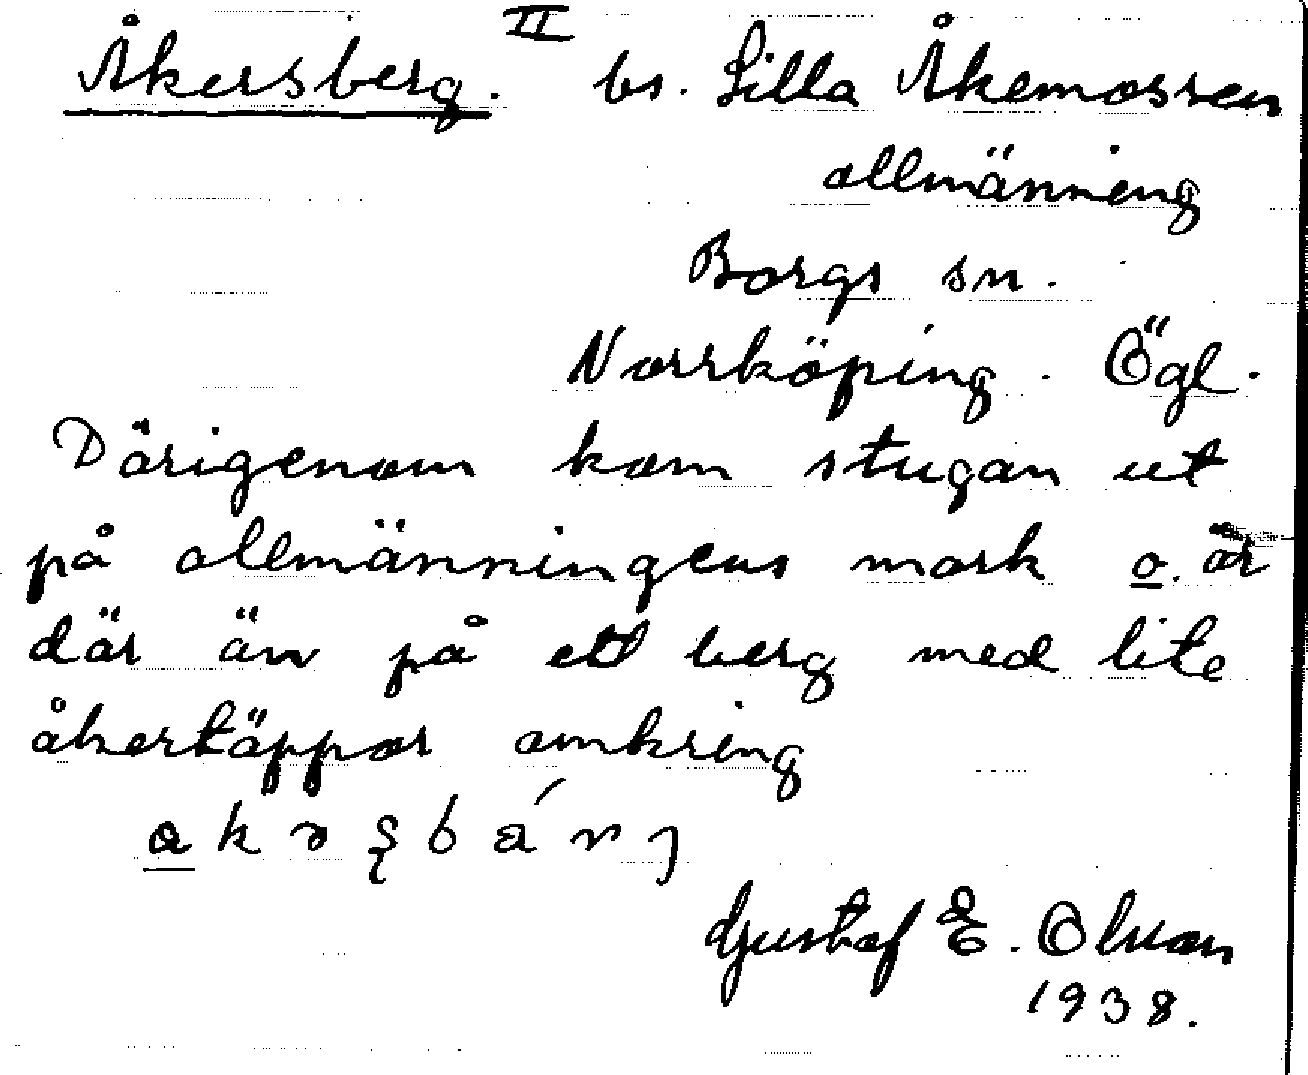 Åkersberg. II bs. Lilla Åkemossen
allmänning
Borgs sn.
Norrköping. Ögl.
Därigenom kom stugan ut
på allmänningens mark o. är
där än på ett berg med lite
åkertäppor omkring
Gustaf E. Olsson
1938.